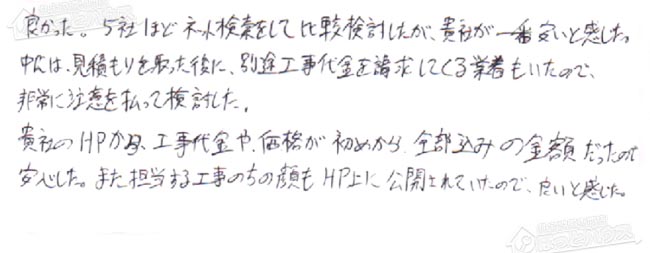 良かった。5社ほどネット検索をして比較検討したが、貴社が一番安いと感じた。
中には、見積もりを取った後に、別途工事代金を請求してくる業者もいたので、
非常に注意を払って検討した。
貴社のHPから、工事代金や、価格が初めから、全部込みの金額だったので
安心した。また担当する工事の方の顔もHP上に公開されていたので、良いと感じた。